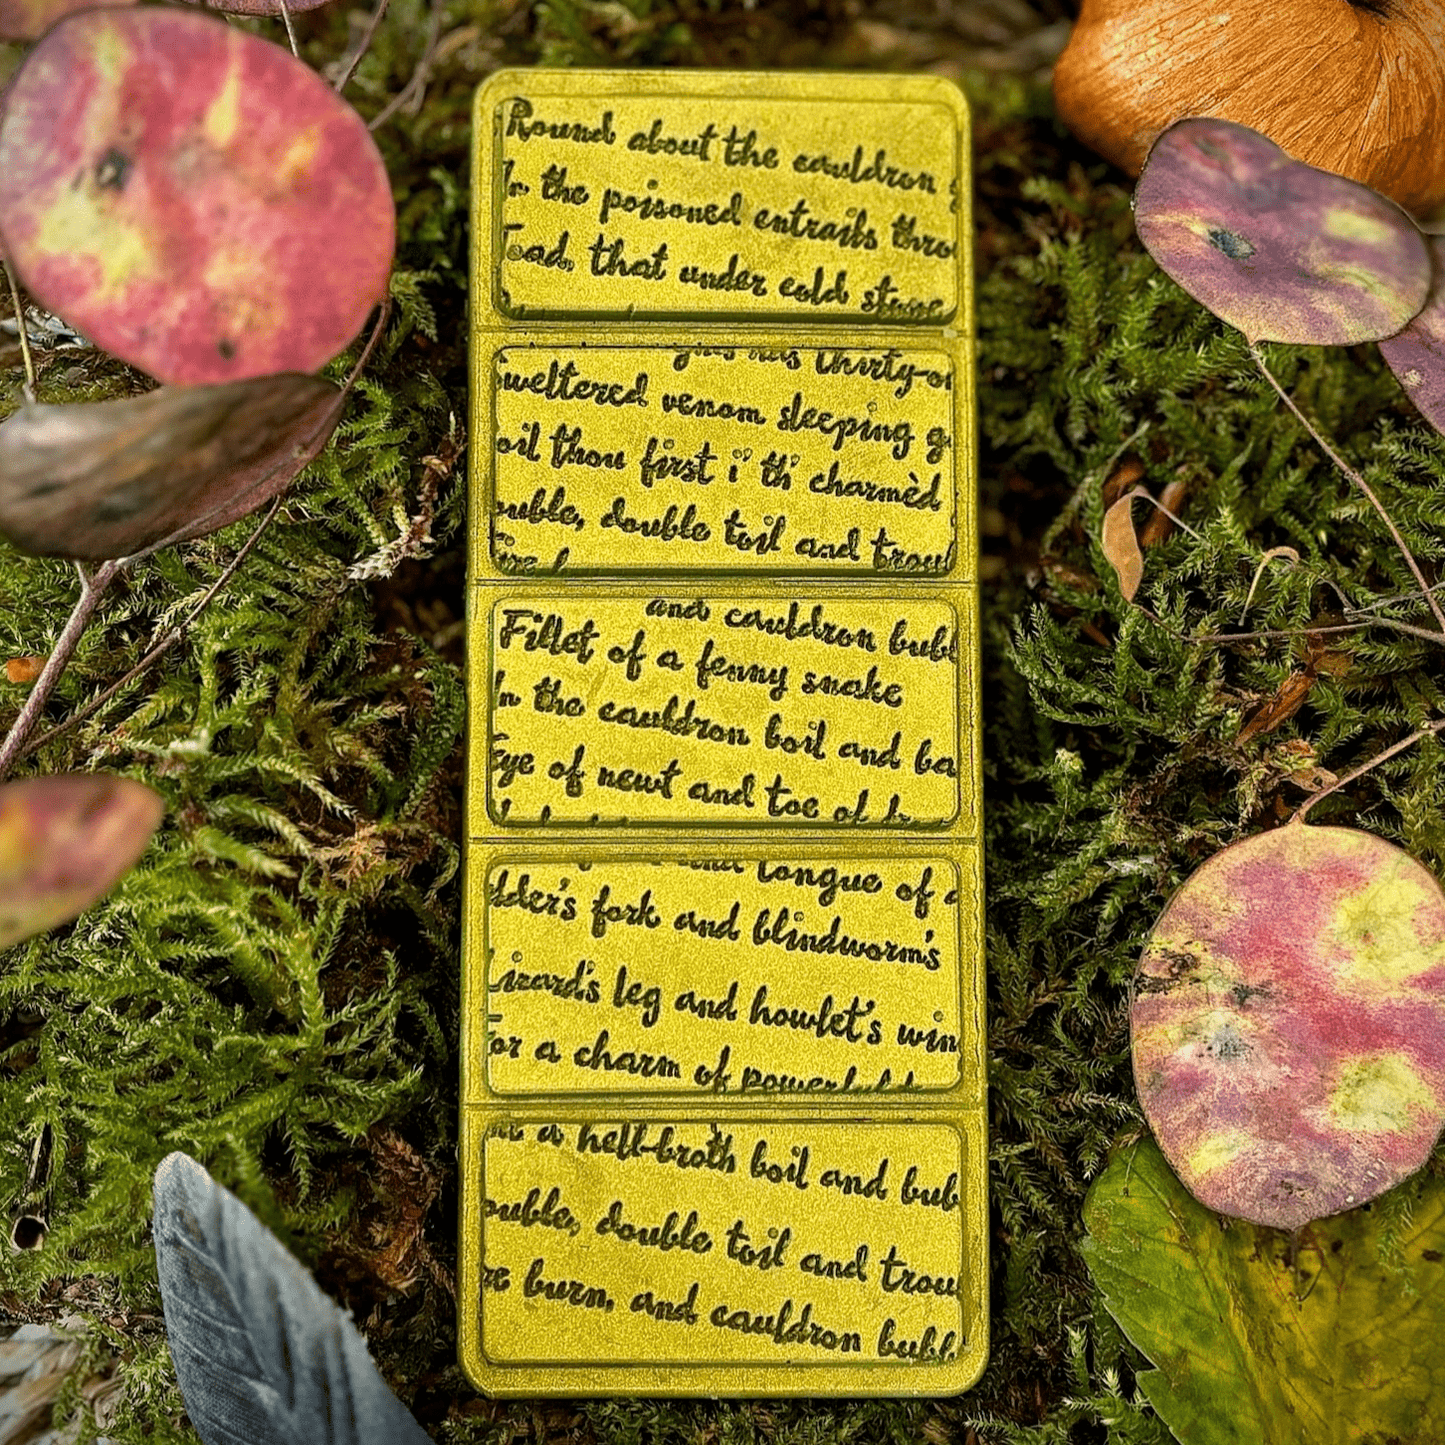 Round about the cauldron
In the poisoned entrails thro
Toad, that under cold stone
has thirty-o
Sweltered venom sleeping g
oil thou first i' th' charmèd
ouble, double toil and troub
Fire b
and cauldron bubb
Fillet of a fenny snake
In the cauldron boil and ba
Eye of newt and toe of
and tongue of
dder's fork and blindworm's
Lizard's leg and howlet's win
For a charm of powerful
a hell-broth boil and bub
ouble, double toil and trou
re burn, and cauldron bubbl